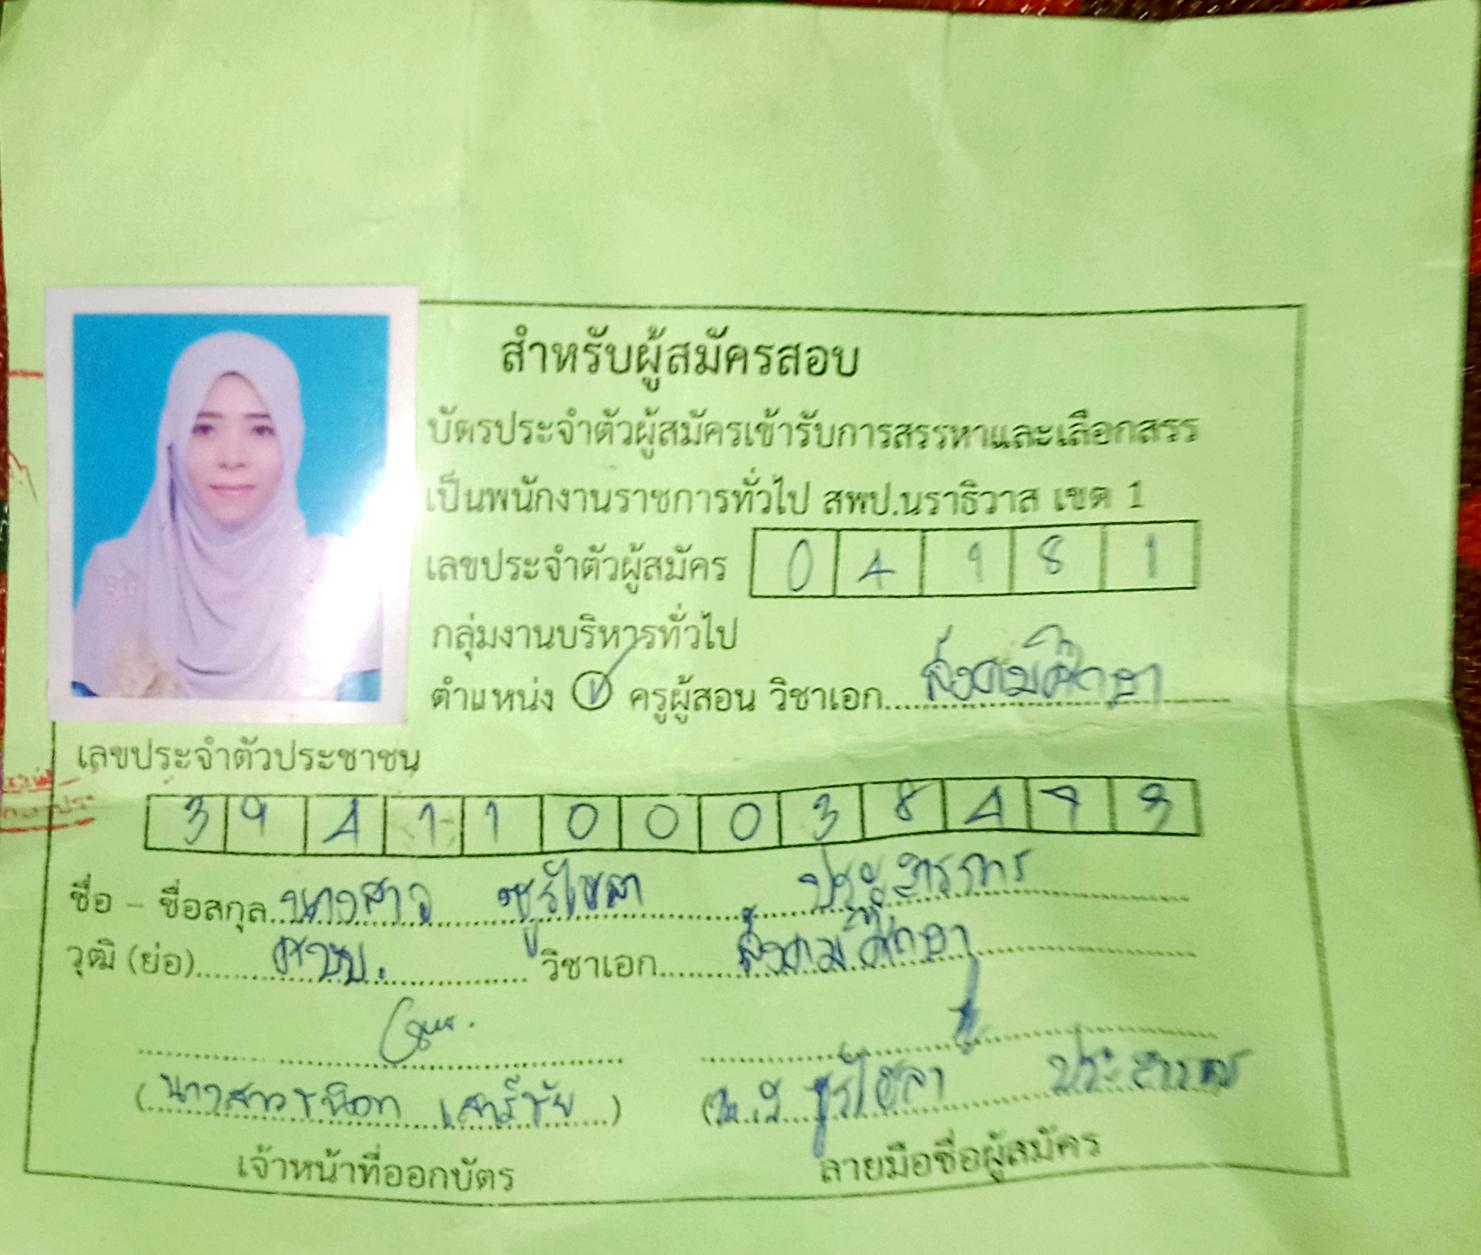 สำหรับผู้สมัครสอบ
บัตรประจำตัวผู้สมัครเข้ารับการสรรหาและเลือกสรร
เป็นพนักงานราชการทั่วไป สพป.นราธิวาส เขต 1
เลขประจำตัวผู้สมัคร 0 4 1 8 1
กลุ่มงานบริหารทั่วไป
ตำแหน่ง ครูผู้สอน วิชาเอก สังคมศึกษา
เลขประจำตัวประชาชน
ชื่อ - ชื่อสกุล นางสาว ซูไรลา
วุฒิ (ย่อ) ศษบ. วิชาเอก สังคมศึกษา
(นางสาว) (น.ส. ซูไรลา)
เจ้าหน้าที่ออกบัตร ลายมือชื่อผู้สมัคร